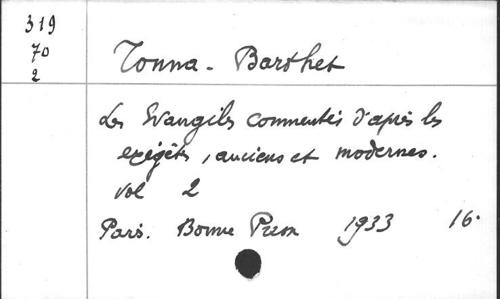 319
70
2
Tonna - Barthet
Les Evangiles commentés d'après les
exégètes, anciens et modernes.
Vol 2
Paris. Bonne Presse 1933 16°